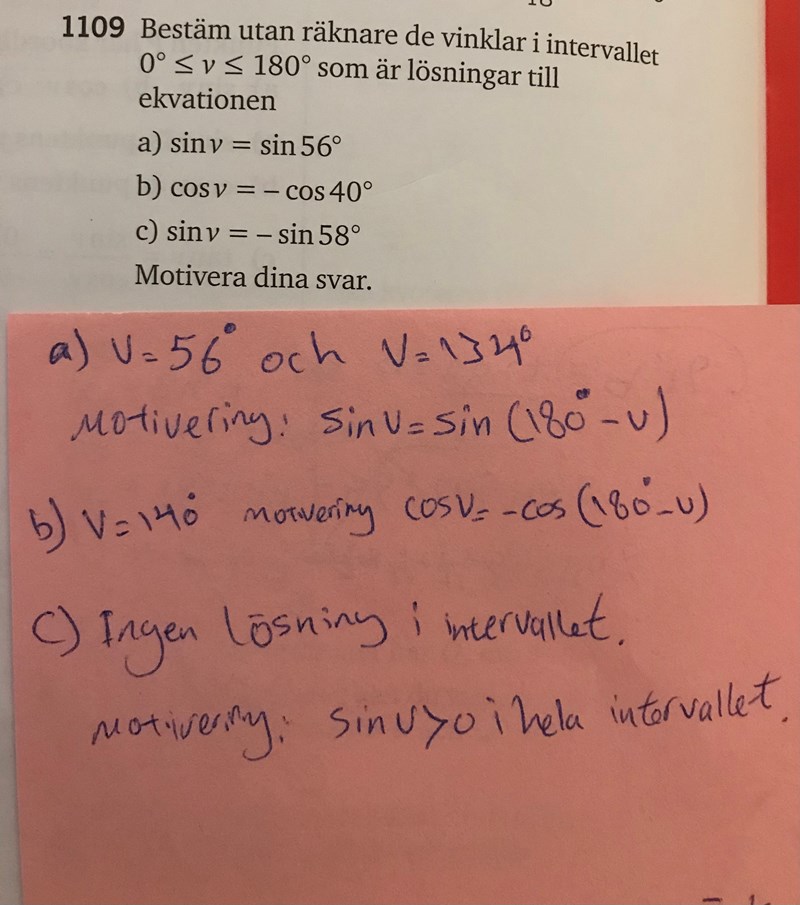 1109 Bestäm utan räknare de vinklar i intervallet
0° ≤ v ≤ 180° som är lösningar till
ekvationen
a) sin v = sin 56°
b) cos v = – cos 40°
c) sin v = – sin 58°
Motivera dina svar.
a) v = 56° och v = 134°
Motivering: sin v = sin (180° - v)
b) v = 140° motivering cos v = - cos (180° - v)
c) Ingen lösning i intervallet.
Motivering: sin v > 0 i hela intervallet.